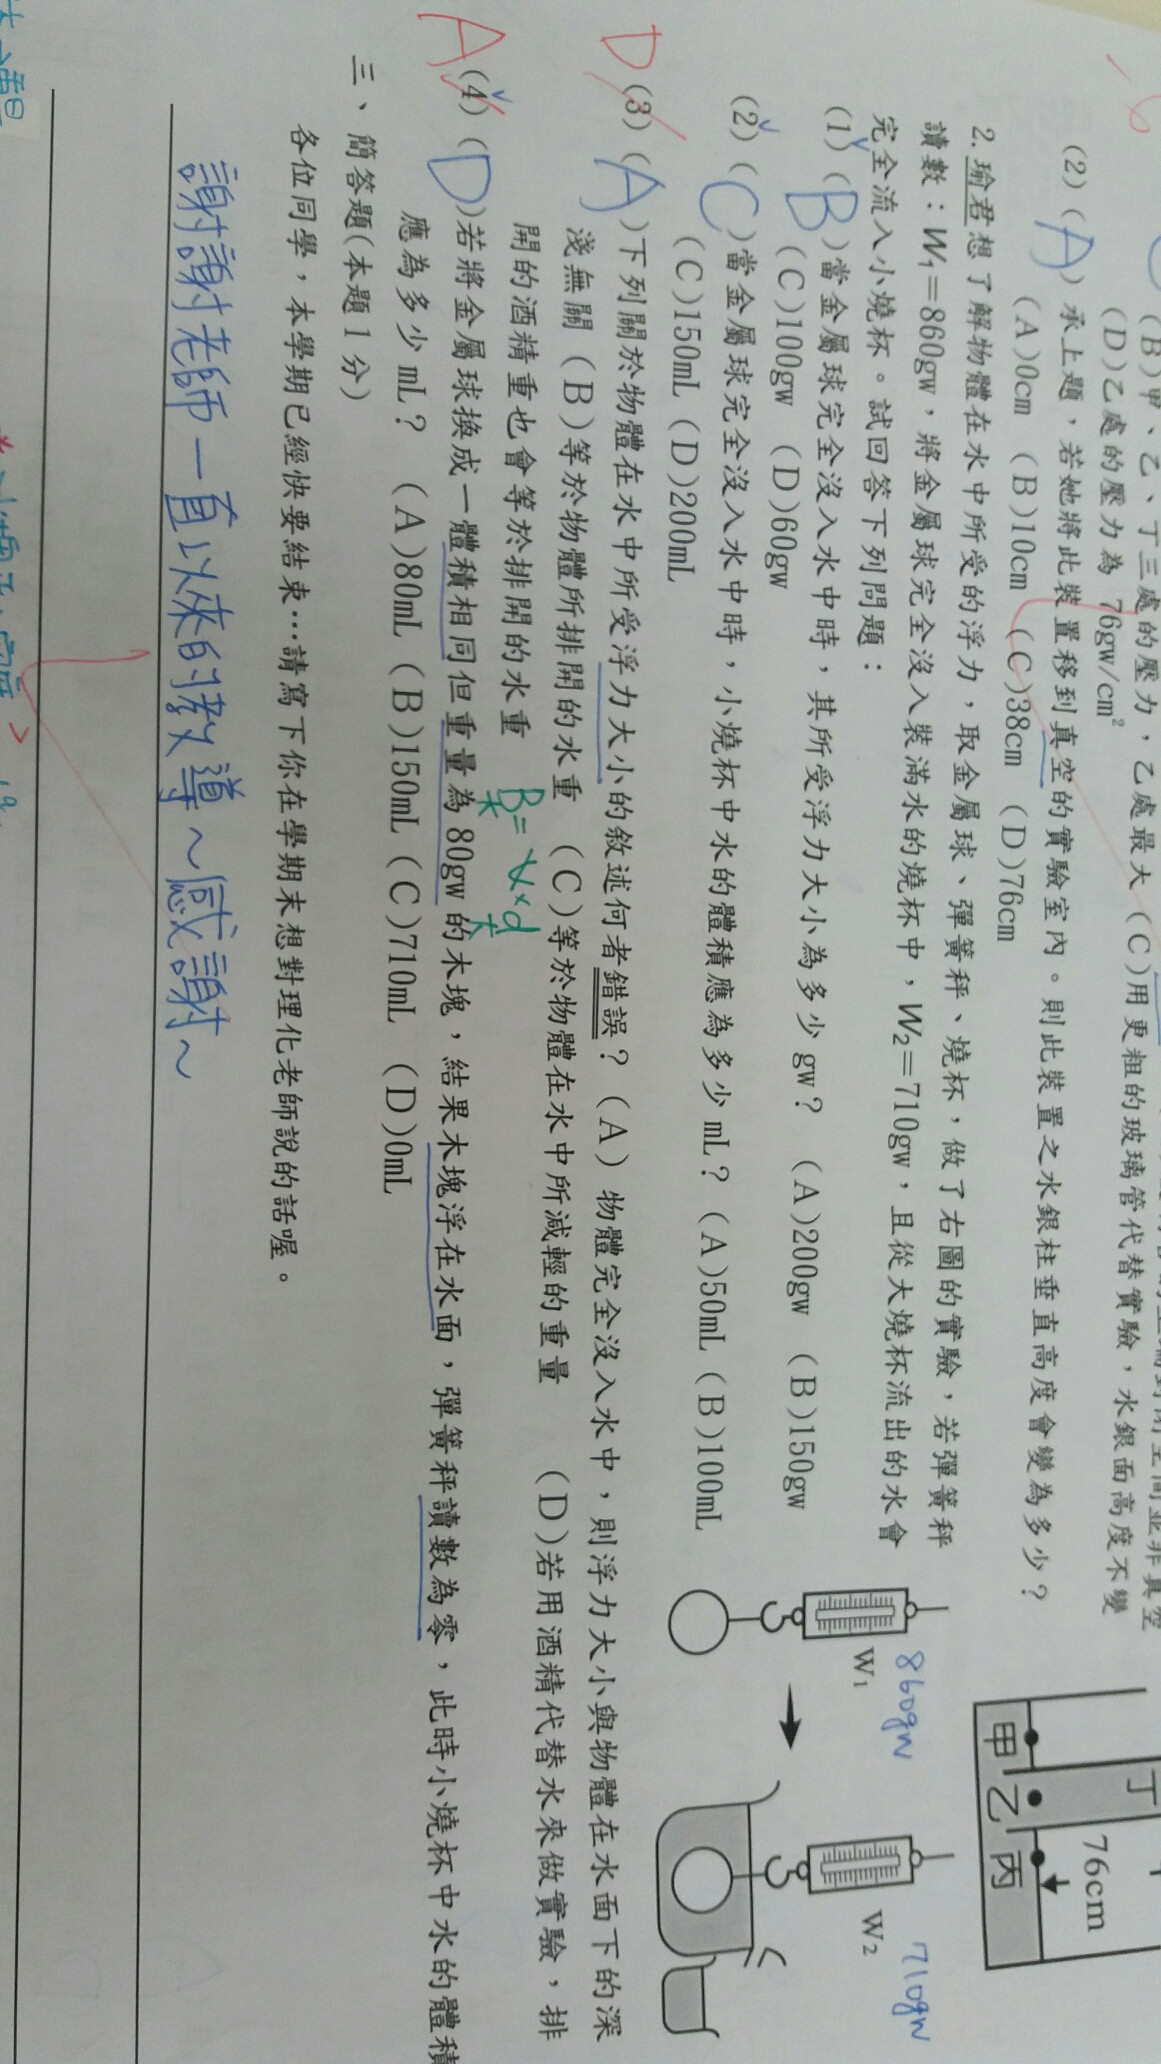 (B)甲、乙、丁三處的壓力，乙處最大 (C)用更粗的玻璃管代替實驗，水銀面高度不變
(D)乙處的壓力為 76gw/cm²
(2) (A) 承上題，若她將此裝置移到真空的實驗室內。則此裝置之水銀柱垂直高度會變為多少？
(A)0cm (B)10cm (C)38cm (D)76cm
甲 乙 丙 丁 76cm
2. 瑜君想了解物體在水中所受的浮力，取金屬球、彈簧秤、燒杯，做了右圖的實驗，若彈簧秤
讀數：W₁＝860gw，將金屬球完全沒入裝滿水的燒杯中，W₂＝710gw，且從大燒杯流出的水會
完全流入小燒杯。試回答下列問題：
(1) (B)當金屬球完全沒入水中時，其所受浮力大小為多少 gw？ (A)200gw (B)150gw
(C)100gw (D)60gw
(2) (C)當金屬球完全沒入水中時，小燒杯中水的體積應為多少 mL？ (A)50mL (B)100mL
(C)150mL (D)200mL
860gw
W₁
710gw
W₂
D
(3) (A)下列關於物體在水中所受浮力大小的敘述何者錯誤？ (A) 物體完全沒入水中，則浮力大小與物體在水面下的深
淺無關 (B)等於物體所排開的水重 (C)等於物體在水中所減輕的重量 (D)若用酒精代替水來做實驗，排
開的酒精重也會等於排開的水重
B=V×d
A
(4) (D)若將金屬球換成一體積相同但重量為 80gw 的木塊，結果木塊浮在水面，彈簧秤讀數為零，此時小燒杯中水的體積
應為多少 mL？ (A)80mL (B)150mL (C)710mL (D)0mL
三、簡答題(本題 1 分)
各位同學，本學期已經快要結束…請寫下你在學期末想對理化老師說的話喔。
謝謝老師一直以來的教導～感謝～